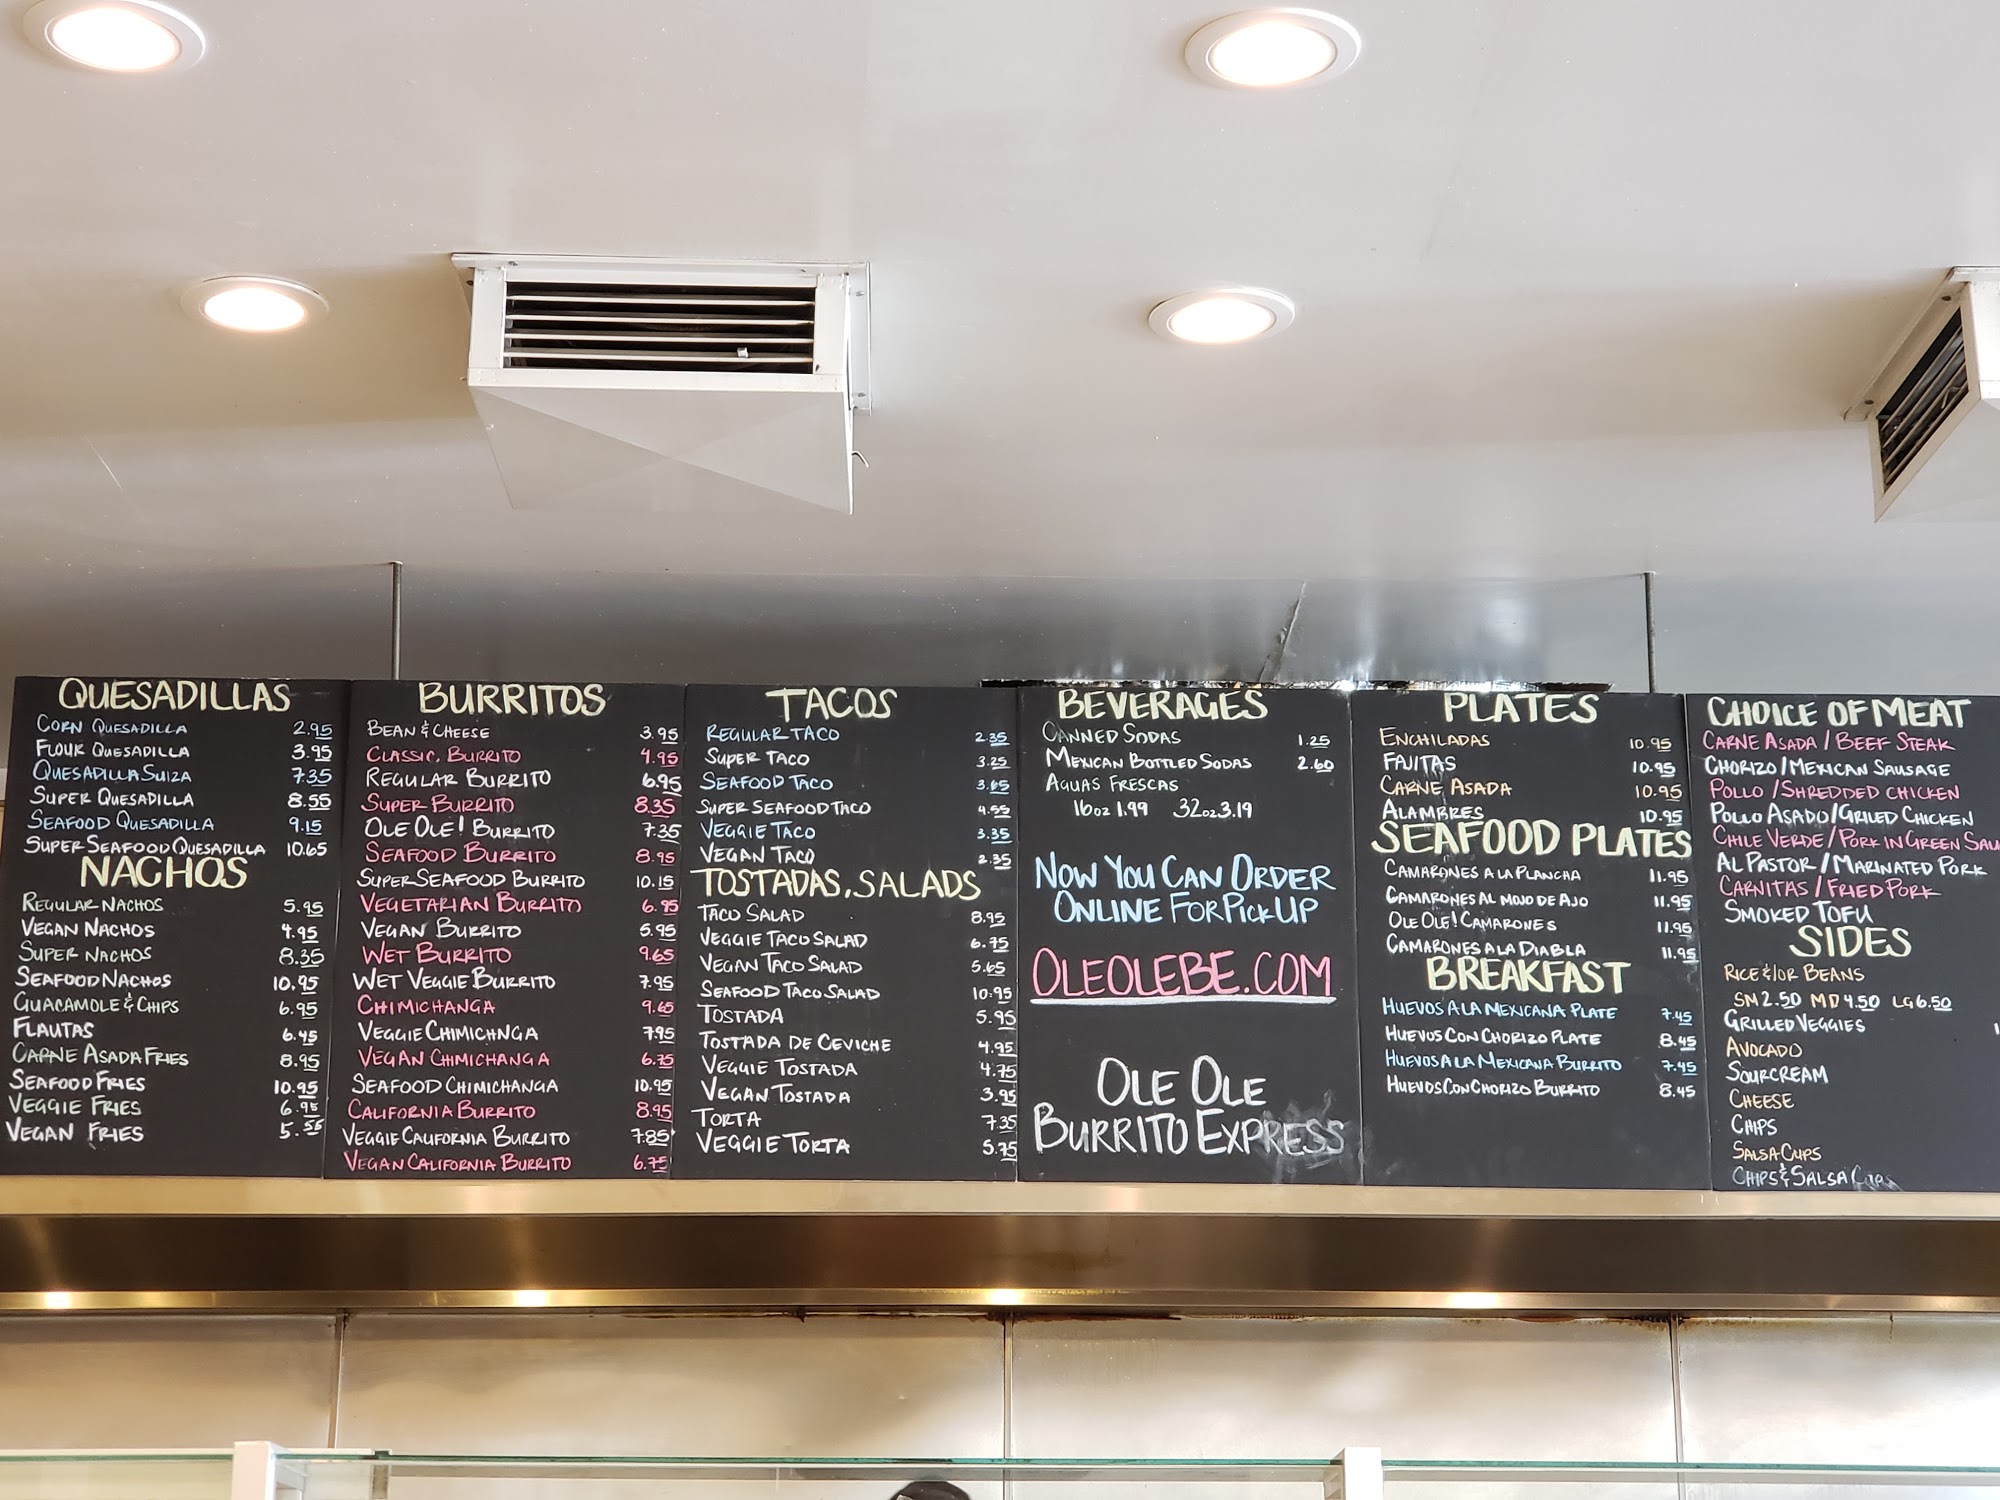 QUESADILLAS
CORN QUESADILLA 2.95
FLOUR QUESADILLA 3.95
QUESADILLA SUIZA 7.35
SUPER QUESADILLA 8.55
SEAFOOD QUESADILLA 9.15
SUPER SEAFOOD QUESADILLA 10.65
NACHOS
REGULAR NACHOS 5.95
VEGAN NACHOS 4.95
SUPER NACHOS 8.35
SEAFOOD NACHOS 10.95
GUACAMOLE & CHIPS 6.95
FLAUTAS 6.45
CARNE ASADA FRIES 8.95
SEAFOOD FRIES 10.95
VEGGIE FRIES 6.95
VEGAN FRIES 5.55
BURRITOS
BEAN & CHEESE 3.95
CLASSIC. BURRITO 4.95
REGULAR BURRITO 6.95
SUPER BURRITO 8.35
OLE OLE! BURRITO 7.35
SEAFOOD BURRITO 8.95
SUPER SEAFOOD BURRITO 10.15
VEGETARIAN BURRITO 6.95
VEGAN BURRITO 5.95
WET BURRITO 9.65
WET VEGGIE BURRITO 7.95
CHIMICHANGA 9.65
VEGGIE CHIMICHNGA 7.95
VEGAN CHIMICHANGA 6.75
SEAFOOD CHIMICHANGA 10.95
CALIFORNIA BURRITO 8.95
VEGGIE CALIFORNIA BURRITO 7.85
VEGAN CALIFORNIA BURRITO 6.75
TACOS
REGULAR TACO 2.35
SUPER TACO 3.25
SEAFOOD TACO 3.65
SUPER SEAFOOD TACO 4.55
VEGGIE TACO 3.35
VEGAN TACO 2.35
TOSTADAS, SALADS
TACO SALAD 8.95
VEGGIE TACO SALAD 6.75
VEGAN TACO SALAD 5.65
SEAFOOD TACO SALAD 10.95
TOSTADA 5.95
TOSTADA DE CEVICHE 4.95
VEGGIE TOSTADA 4.75
VEGAN TOSTADA 3.95
TORTA 7.35
VEGGIE TORTA 5.75
BEVERAGES
CANNED SODAS 1.25
MEXICAN BOTTLED SODAS 2.60
AGUAS FRESCAS
16oz 1.99 32oz 3.19
NOW YOU CAN ORDER
ONLINE FOR PICK UP
OLEOLEBE.COM
OLE OLE
BURRITO EXPRESS
PLATES
ENCHILADAS 10.95
FAJITAS 10.95
CARNE ASADA 10.95
ALAMBRES 10.95
SEAFOOD PLATES
CAMARONES A LA PLANCHA 11.95
CAMARONES AL MOJO DE AJO 11.95
OLE OLE! CAMARONES 11.95
CAMARONES A LA DIABLA 11.95
BREAKFAST
HUEVOS A LA MEXICANA PLATE 7.45
HUEVOS CON CHORIZO PLATE 8.45
HUEVOS A LA MEXICANA BURRITO 7.45
HUEVOS CON CHORIZO BURRITO 8.45
CHOICE OF MEAT
CARNE ASADA / BEEF STEAK
CHORIZO / MEXICAN SAUSAGE
POLLO / SHREDDED CHICKEN
POLLO ASADO / GRILED CHICKEN
CHILE VERDE / PORK IN GREEN SAU
AL PASTOR / MARINATED PORK
CARNITAS / FRIED PORK
SMOKED TOFU
SIDES
RICE &/OR BEANS
SM 2.50 MD 4.50 LG 6.50
GRILLED VEGGIES
AVOCADO
SOURCREAM
CHEESE
CHIPS
SALSA CUPS
CHIPS & SALSA CUPS